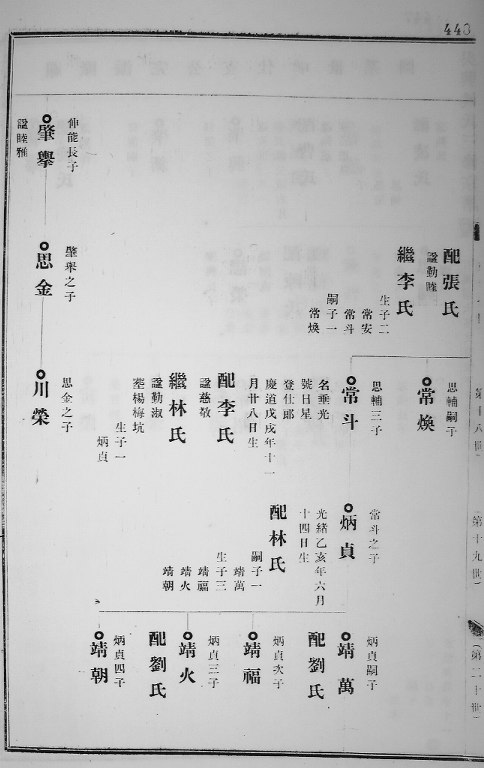 443
配張氏
諡勤睦
繼李氏
生子二
常安
常斗
嗣子一
常煥
常煥
思輔嗣子
常斗
思輔三子
名垂光
號日星
登仕郎
慶道戊戌年十一
月廿八日生
配李氏
諡慈敬
繼林氏
諡勤淑
葬楊梅坑
生子一
炳貞
炳貞
常斗之子
光緒乙亥年六月
十四日生
配林氏
嗣子一
靖萬
生子三
靖福
靖火
靖朝
靖萬
炳貞嗣子
配劉氏
靖福
炳貞次子
靖火
炳貞三子
配劉氏
靖朝
炳貞四子
肇舉
伸能長子
諡睦雅
思金
肇舉之子
川榮
思金之子
第十八世
(第十九世)
(第二十世)